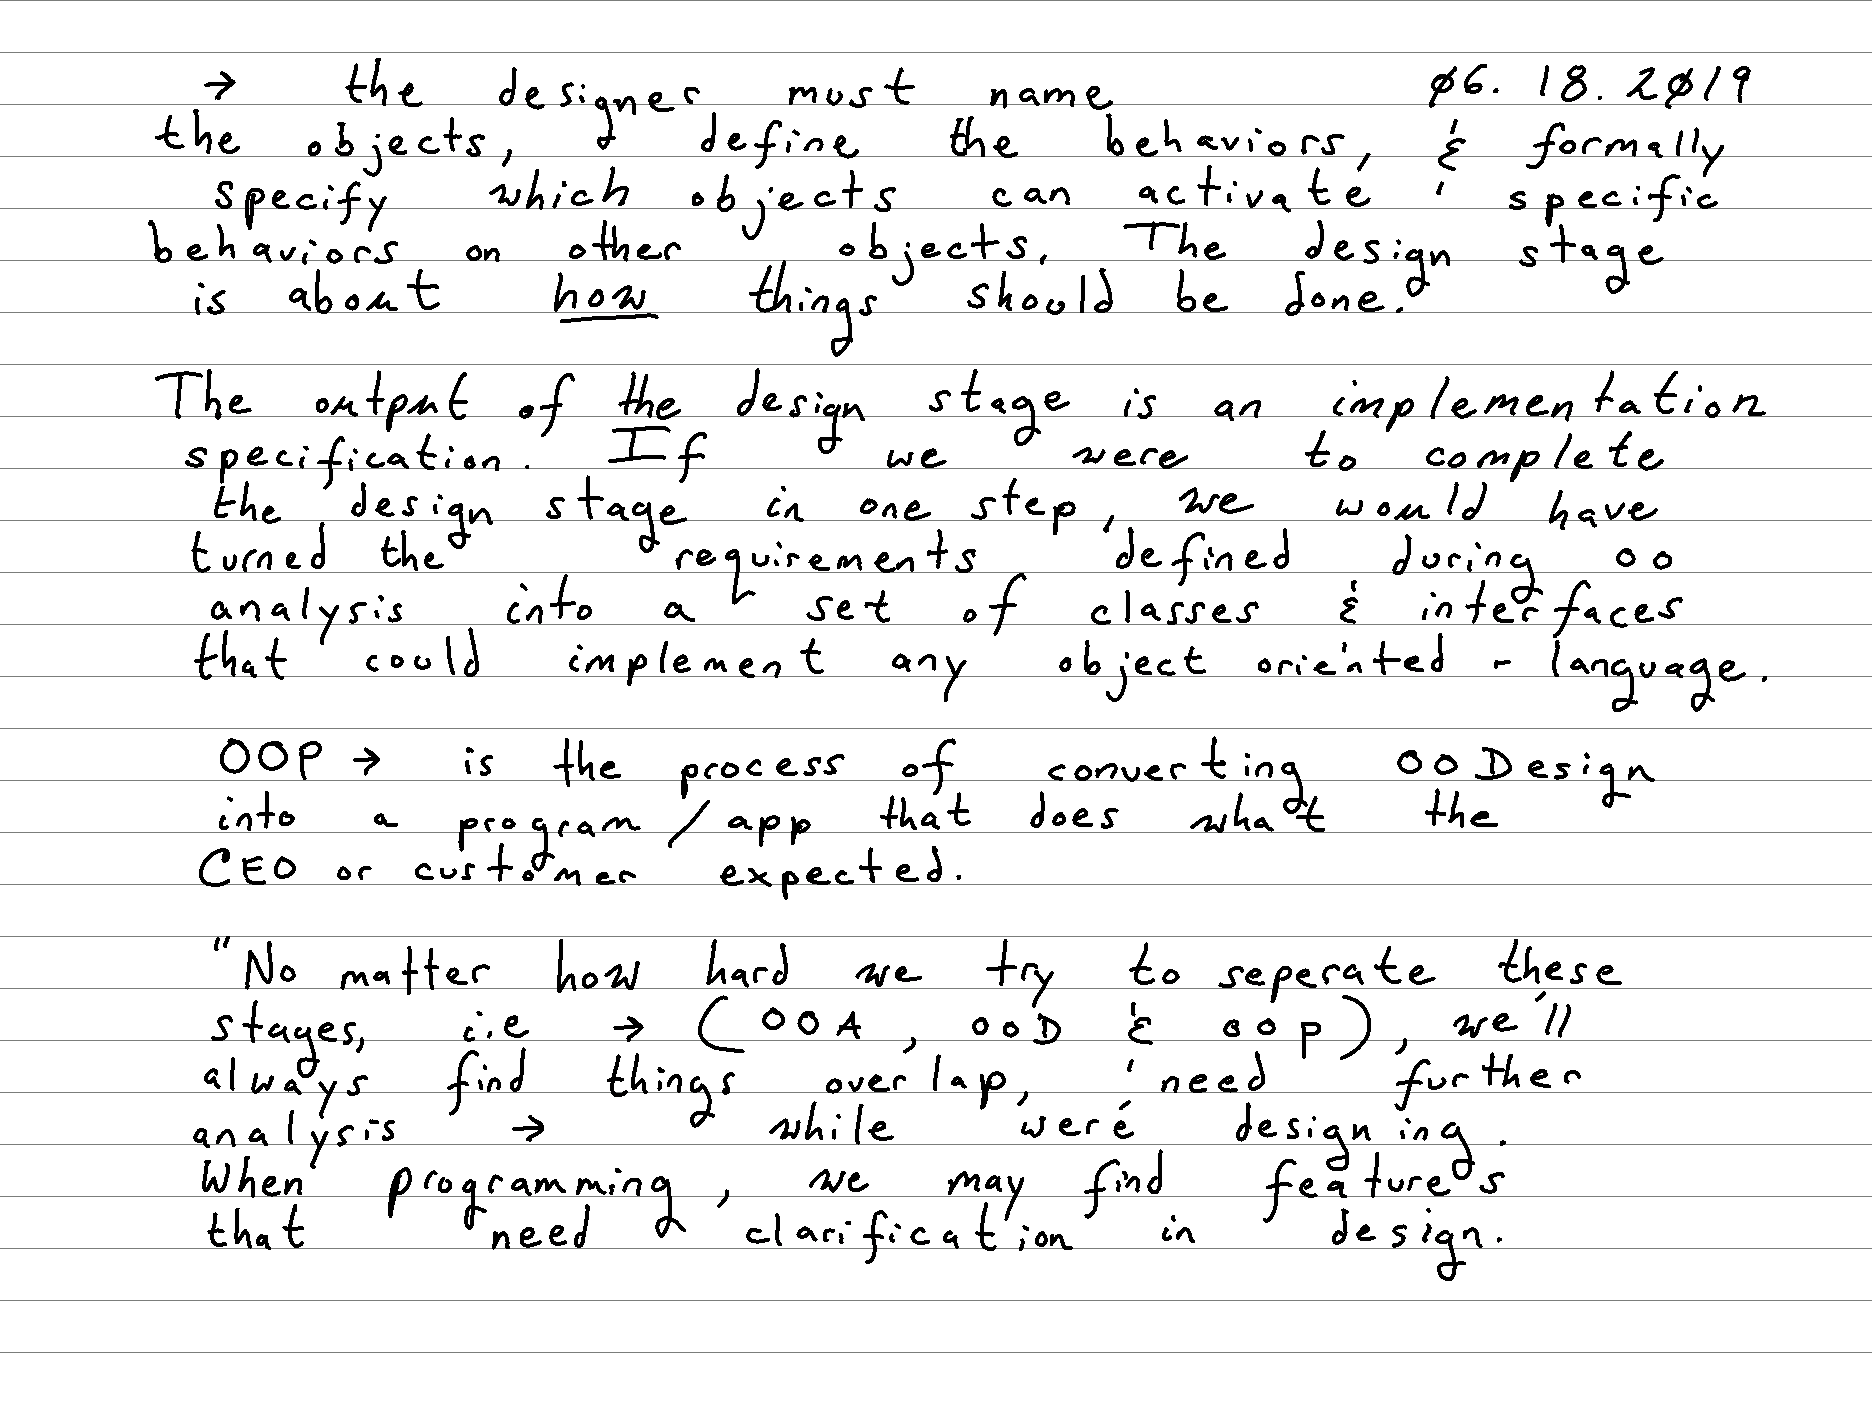 → the designer must name 06.18.2019
the objects, define the behaviors, & formally
specify which objects can activate specific
behaviors on other objects. The design stage
is about how things should be done.
The output of the design stage is an implementation
specification. If we were to complete
the design stage in one step, we would have
turned the requirements defined during oo
analysis into a set of classes & interfaces
that could implement any object oriented - language.
OOP → is the process of converting OO Design
into a program / app that does what the
CEO or customer expected.
"No matter how hard we try to seperate these
stages, i.e → (OOA, OOD & OOP), we'll
always find things overlap, need further
analysis → while were' designing.
When programming, we may find features
that need clarification in design.